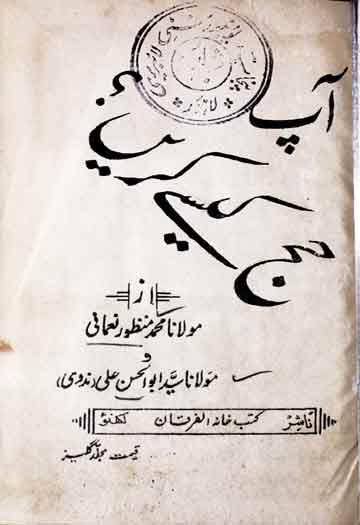 آپ
حج کیسے کریں؟
از
مولانا محمد منظور نعمانی
و
مولانا سید ابوالحسن علی (ندوی)
ناشر کتب خانہ الفرقان لکھنؤ
قیمت مجلد گلیز
لاہور